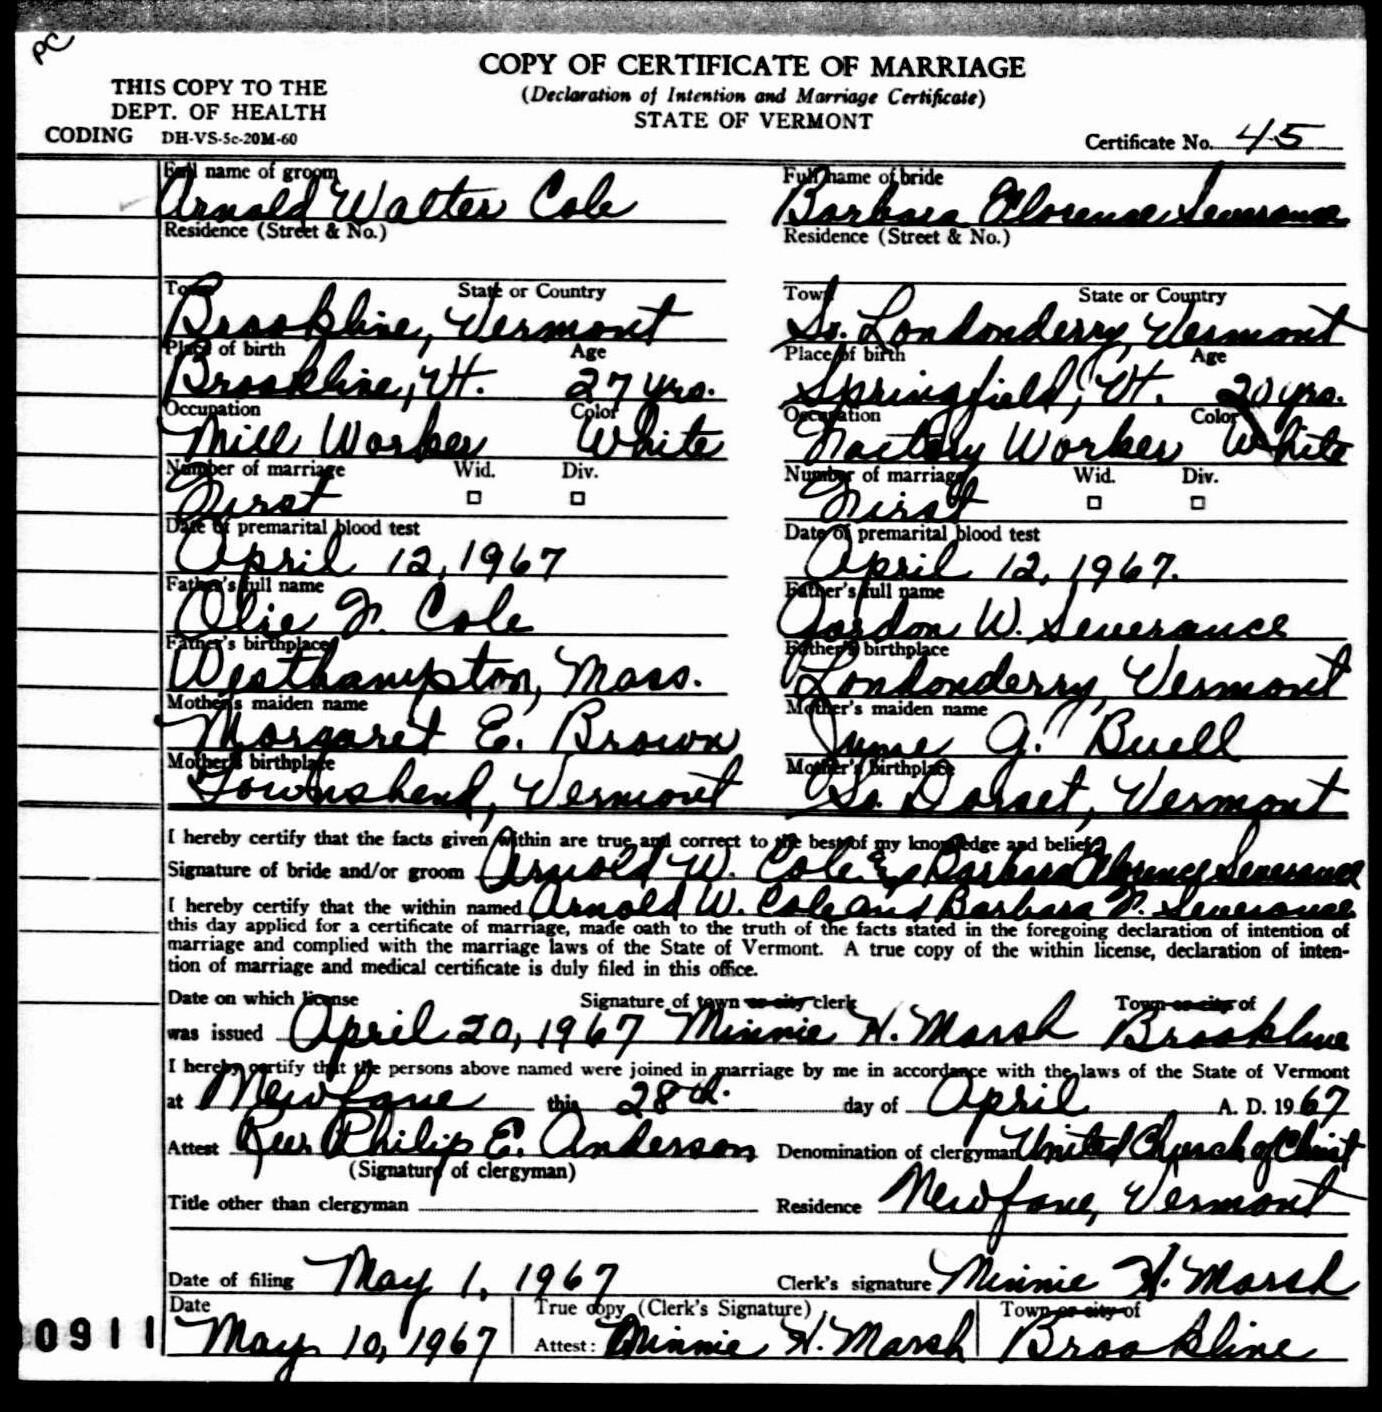 PC
COPY OF CERTIFICATE OF MARRIAGE
THIS COPY TO THE
(Declaration of Intention and Marriage Certificate)
DEPT. OF HEALTH
STATE OF VERMONT
CODING DH-VS-5c-20M-60
Certificate No. 45
Full name of groom Full name of bride
Arnold Walter Cole Barbara Florence Severance
Residence (Street & No.) Residence (Street & No.)
Town State or Country Town State or Country
Brookline, Vermont So. Londonderry, Vermont
Place of birth Age Place of birth Age
Brookline, Vt. 27 yrs. Springfield, Vt. 20 yrs.
Occupation Color Occupation Color
Mill Worker White Factory Worker White
Number of marriage Wid. Div. Number of marriage Wid. Div.
First First
Date of premarital blood test Date of premarital blood test
April 12, 1967 April 12, 1967.
Father's full name Father's full name
Olie F. Cole Gordon W. Severance
Father's birthplace Father's birthplace
Westhampton, Mass. Londonderry, Vermont
Mother's maiden name Mother's maiden name
Margaret E. Brown June G. Buell
Mother's birthplace Mother's birthplace
Townshend, Vermont So. Dorset, Vermont
I hereby certify that the facts given within are true and correct to the best of my knowledge and belief.
Signature of bride and/or groom Arnold W. Cole & Barbara Florence Severance
I hereby certify that the within named Arnold W. Cole and Barbara F. Severance
this day applied for a certificate of marriage, made oath to the truth of the facts stated in the foregoing declaration of intention of
marriage and complied with the marriage laws of the State of Vermont. A true copy of the within license, declaration of inten-
tion of marriage and medical certificate is duly filed in this office.
Date on which license Signature of town or city clerk Town or city of
was issued April 20, 1967 Minnie H. Marsh Brookline
I hereby certify that the persons above named were joined in marriage by me in accordance with the laws of the State of Vermont
at Newfane this 28th day of April A. D. 1967
Attest Rev Philip E. Anderson Denomination of clergyman United Church of Christ
(Signature of clergyman)
Title other than clergyman Residence Newfane, Vermont
Date of filing May 1, 1967 Clerk's signature Minnie H. Marsh
Date True copy (Clerk's Signature) Town or city of
May 10, 1967 Attest: Minnie H. Marsh Brookline
0911